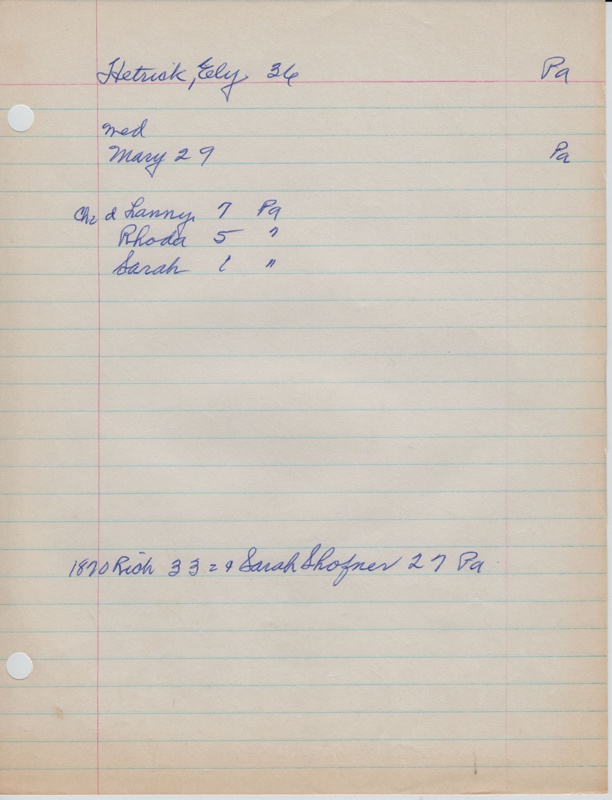 Hetrick, Ely 36 Pa
med
Mary 29 Pa
Ch 2 d Lanny 7 Pa
Rhoda 5 "
Sarah 1 "
1870 Rich 33 = & Sarah Shofner 27 Pa